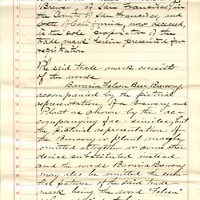 Brewery of San Francisco, in
the County of San Francisco, and
State
is the sole proprietor of the
trade mark herein presented for
registration
The said trade mark consists
of the words
Bavaria Brewery,
accompanied by the pictorial
representation of a Brewery and
Plant as shown by the ac-
companying fac-similes; but
the pictorial representation of
the Brewery or plant may be
omitted altogether or some other
device substituted instead
and the words Bavaria Brewery
may also be omitted the essen-
tial feature of the said trade
mark being the word